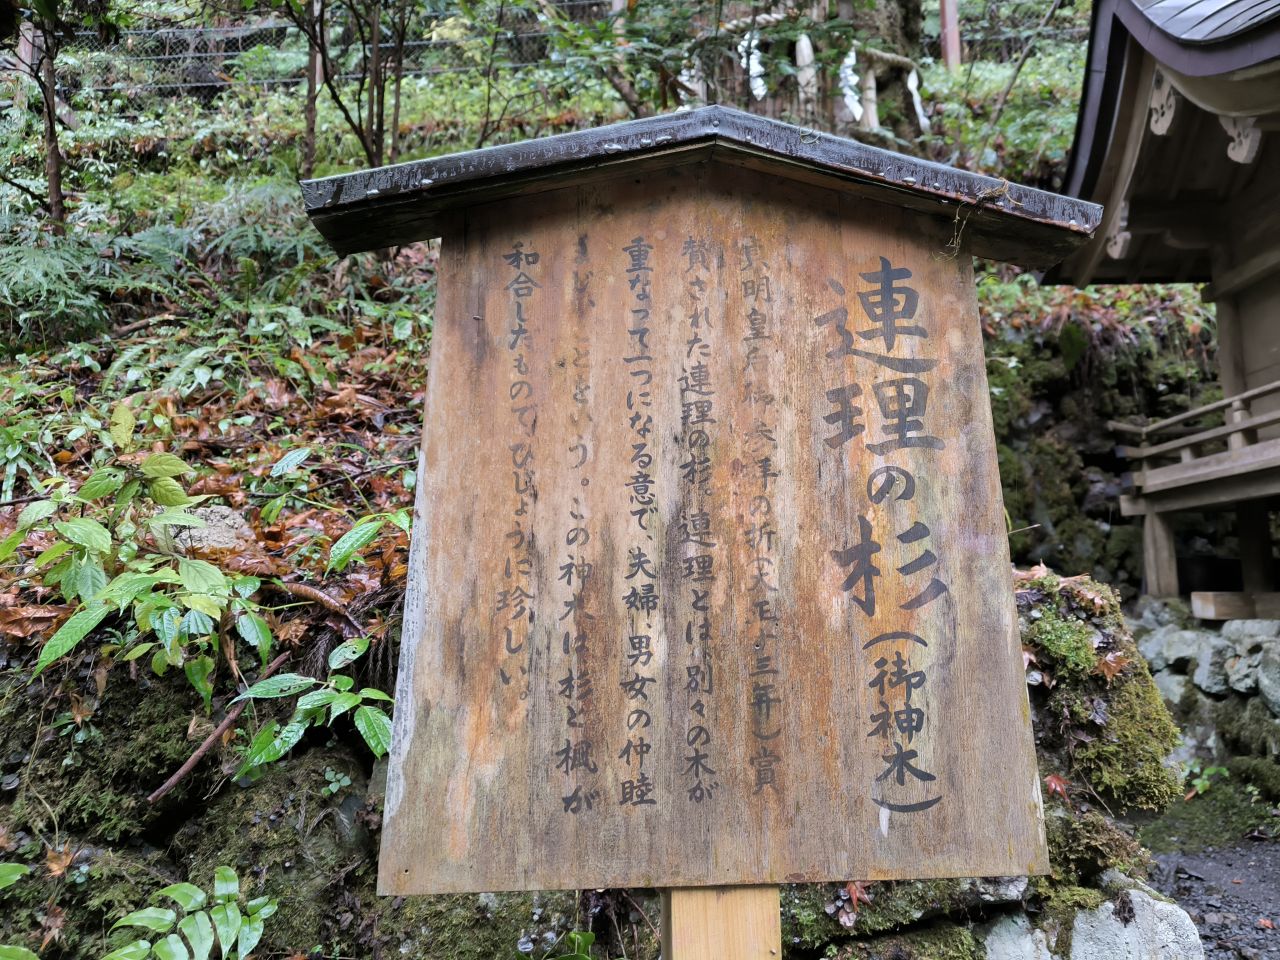 連理の杉(御神木)
明皇后御参拝の折(大正十三年)賞
賛された連理の杉。連理とは、別々の木が
重なって一つになる意で、夫婦、男女の仲睦
ことをいう。この神木は杉と楓が
和合したものでひじょうに珍しい。